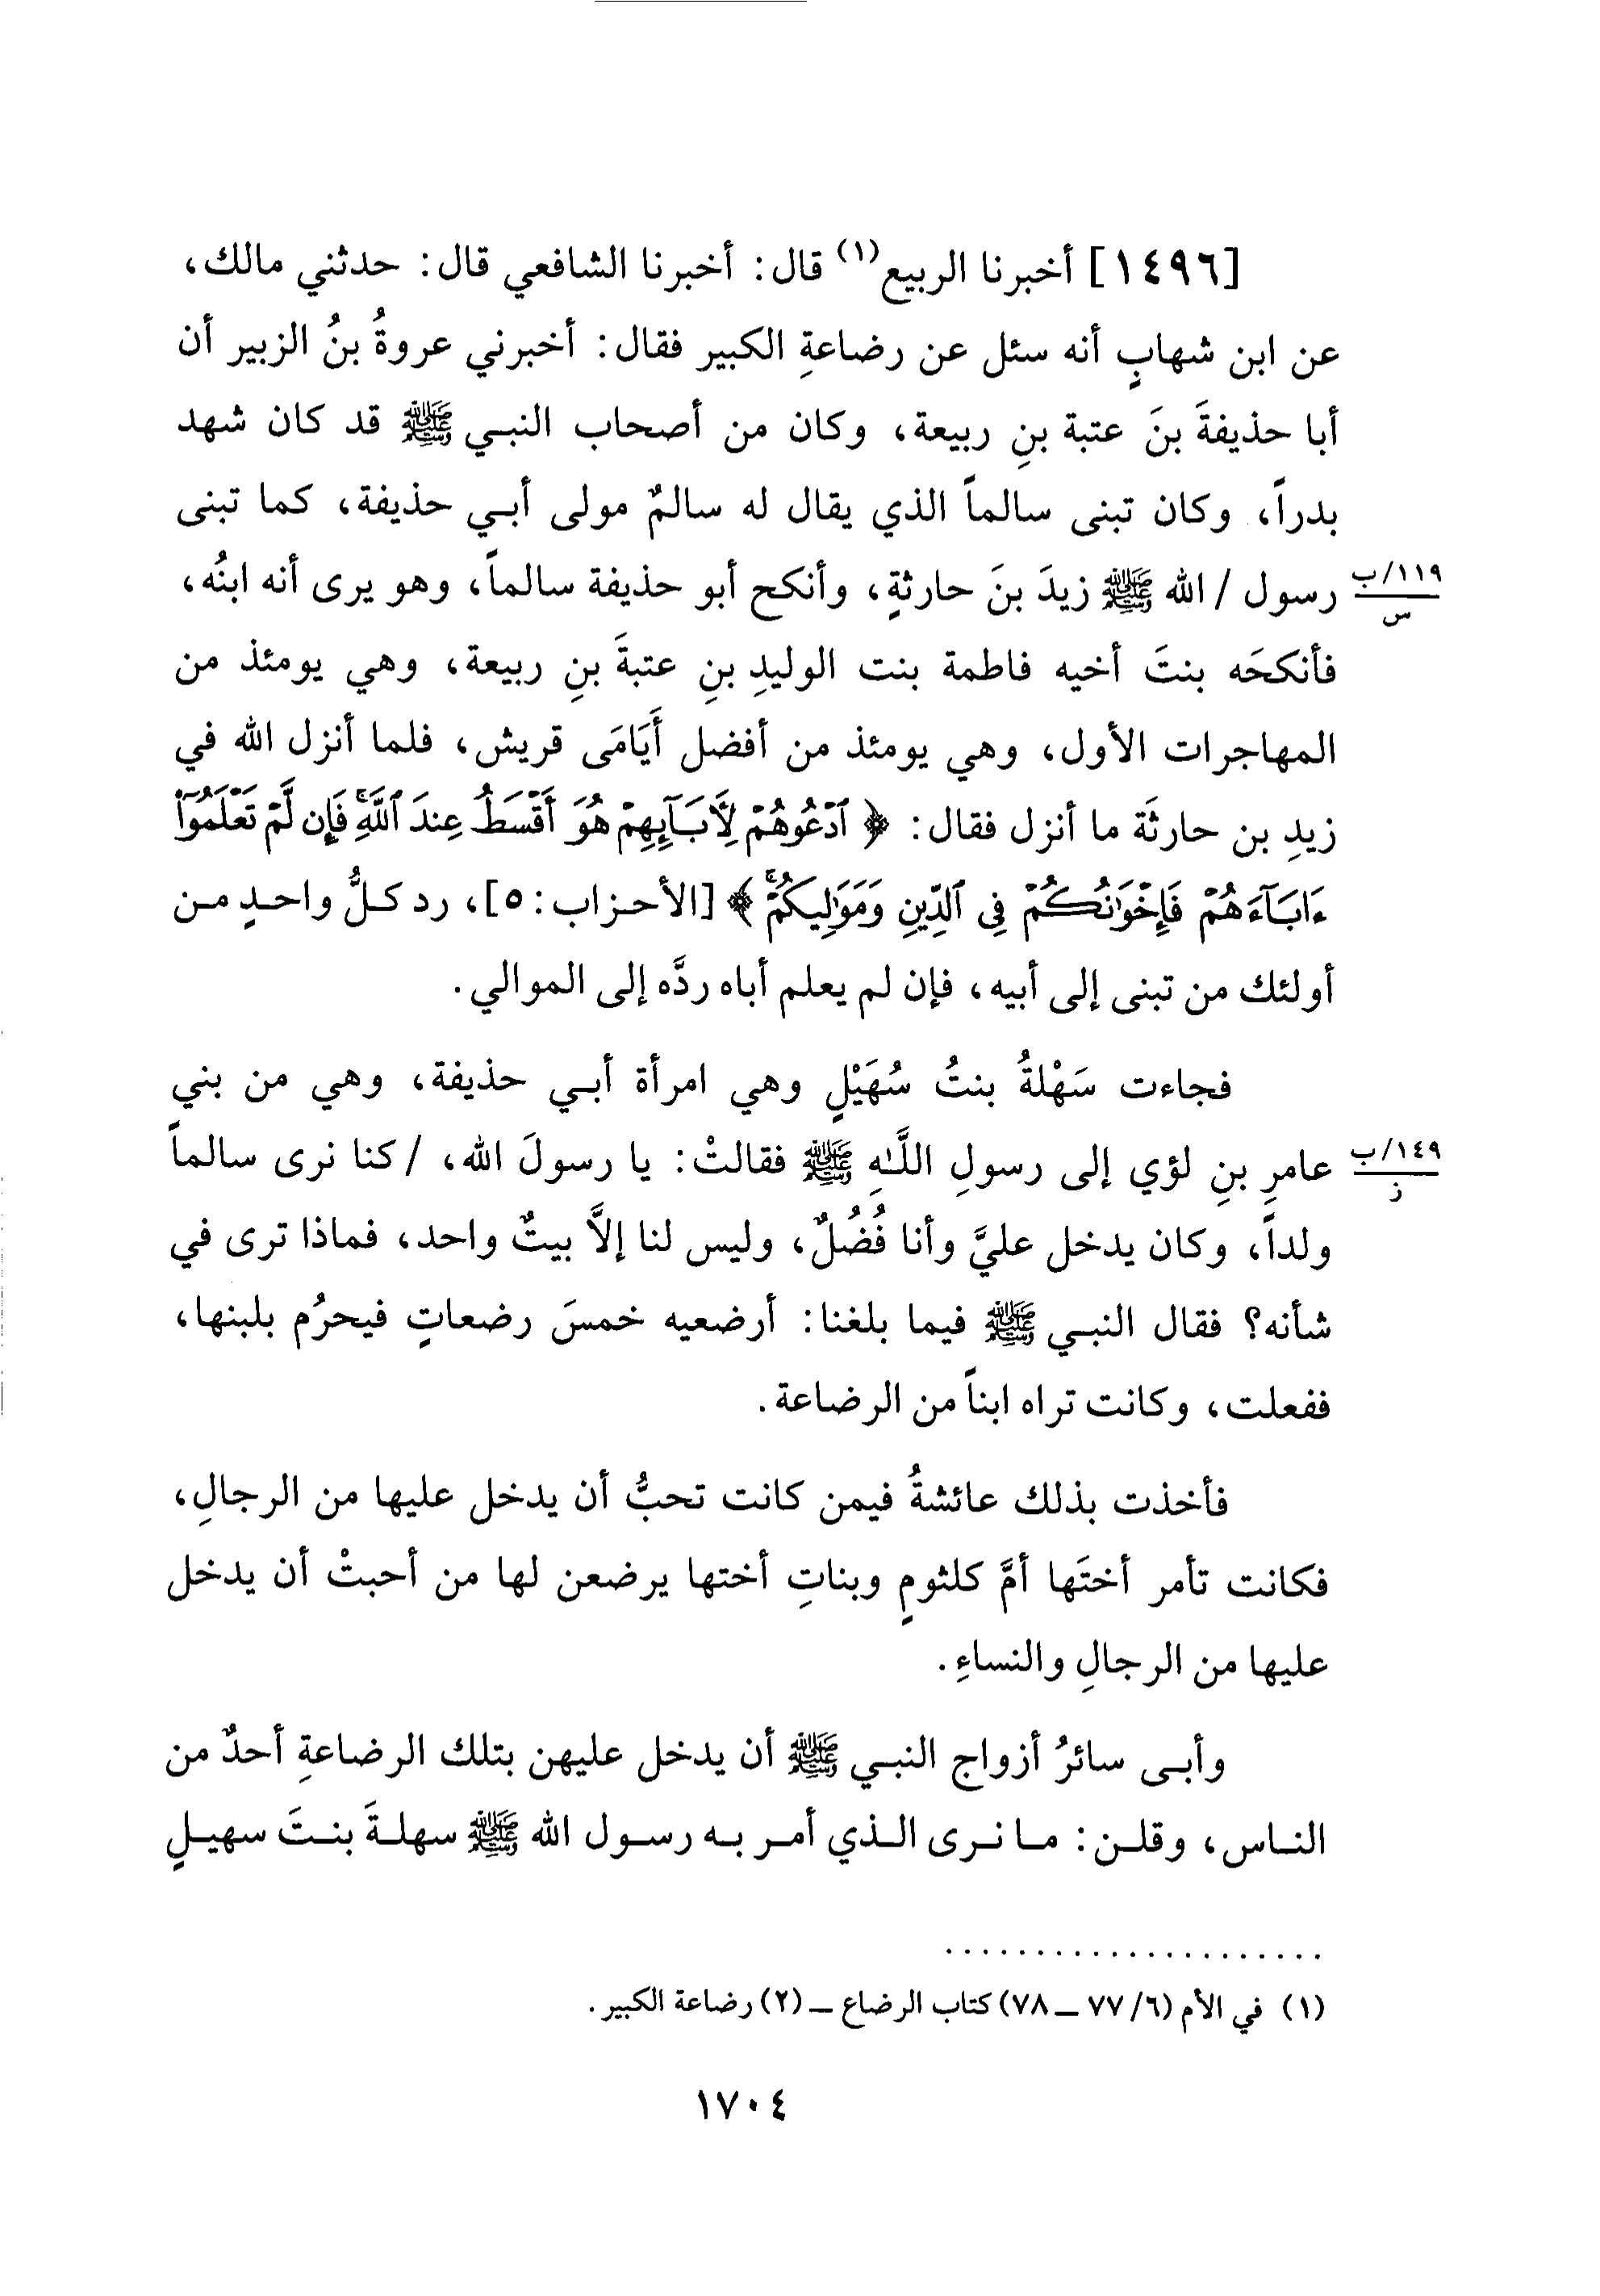 [١٤٩٦] أخبرنا الربيع(١) قال: أخبرنا الشافعي قال: حدثني مالك،
عن ابن شهابٍ أنه سئل عن رضاعةِ الكبير فقال: أخبرني عروةُ بنُ الزبير أن
أبا حذيفةَ بنَ عتبة بنِ ربيعة، وكان من أصحاب النبي ﷺ قد كان شهد
بدراً، وكان تبنى سالماً الذي يقال له سالمٌ مولى أبي حذيفة، كما تبنى
رسول / الله ﷺ زيدَ بنَ حارثةٍ، وأنكح أبو حذيفة سالماً، وهو يرى أنه ابنُه،
١١٩/ب
س
فأنكحَه بنتَ أخيه فاطمة بنت الوليدِ بنِ عتبةَ بنِ ربيعة، وهي يومئذ من
المهاجرات الأول، وهي يومئذ من أفضل أَيَامَى قريش، فلما أنزل الله في
زيدِ بن حارثَة ما أنزل فقال: ﴿ ٱدْعُوهُمْ لِأَبَآئِهِمْ هُوَ أَقْسَطُ عِندَ ٱللَّهِۚ فَإِن لَّمْ تَعْلَمُوٓا۟
ءَابَآءَهُمْ فَإِخْوَٰنُكُمْ فِى ٱلدِّينِ وَمَوَٰلِيكُمْۚ ﴾ [الأحزاب: ٥]، رد كلُّ واحدٍ من
أولئك من تبنى إلى أبيه، فإن لم يعلم أباه ردَّه إلى الموالي.
فجاءت سَهْلةُ بنتُ سُهَيْلٍ وهي امرأة أبي حذيفة، وهي من بني
عامرِ بنِ لؤي إلى رسولِ اللَّهِ ﷺ فقالتْ: يا رسولَ الله، / كنا نرى سالماً
١٤٩/ب
ز
ولداً، وكان يدخل عليَّ وأنا فُضُلٌ، وليس لنا إلاَّ بيتٌ واحد، فماذا ترى في
شأنه؟ فقال النبي ﷺ فيما بلغنا: أرضعيه خمسَ رضعاتٍ فيحرُم بلبنها،
ففعلت، وكانت تراه ابناً من الرضاعة.
فأخذت بذلك عائشةُ فيمن كانت تحبُّ أن يدخل عليها من الرجالِ،
فكانت تأمر أختَها أمَّ كلثومٍ وبناتِ أختها يرضعن لها من أحبتْ أن يدخل
عليها من الرجالِ والنساءِ.
وأبى سائرُ أزواج النبي ﷺ أن يدخل عليهن بتلك الرضاعةِ أحدٌ من
الناس، وقلن: ما نرى الذي أمر به رسول الله ﷺ سهلةَ بنتَ سهيلٍ
. . . . . . . . . . . . . . . . . . . . .
(١) في الأم (٦/ ٧٧ ــ ٧٨) كتاب الرضاع ــ (٢) رضاعة الكبير.
١٧٠٤